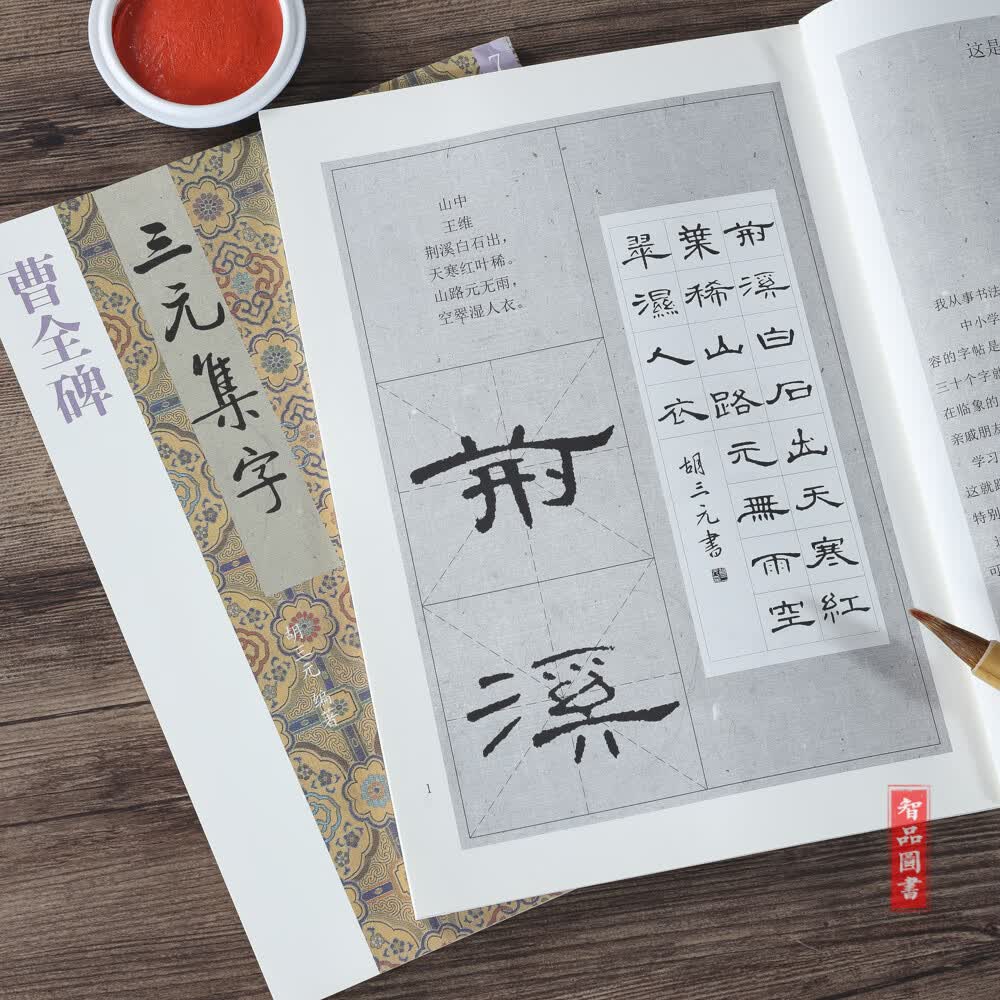 7
曹全碑
三元集字
胡三元 编著
山中
王维
荆溪白石出，
天寒红叶稀。
山路元无雨，
空翠湿人衣。
荊溪白石出天寒紅
葉稀山路元無雨空
翠濕人衣
胡三元書
荊
溪
1
这是
我从事书法
中小学
容的字帖是
三十个字
在临象的
亲戚朋友
学习
这就
特别
可
智品圖書